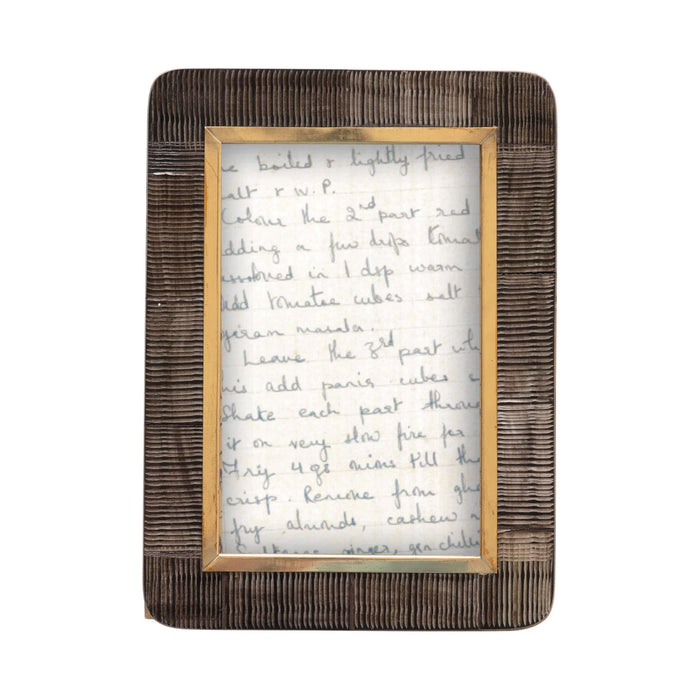 e boiled & lightly fried
alt & W.P.
Colour the 2nd part red
dding a few drops tomat
ssolved in 1 dsp warm
dd tomatoe cubes salt
garam masala.
Leave the 3rd part whi
his add panir cubes
Shake each part throug
it on very slow fire for
Fry 4 gs onions till th
crisp. Remove from ghe
fry almonds, cashew n
ginger, gen chilli